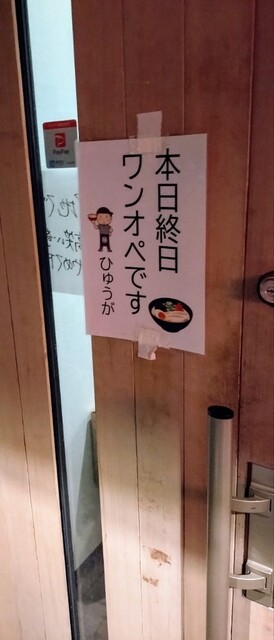 本日終日
ワンオペです
ひゅうが
PayPay